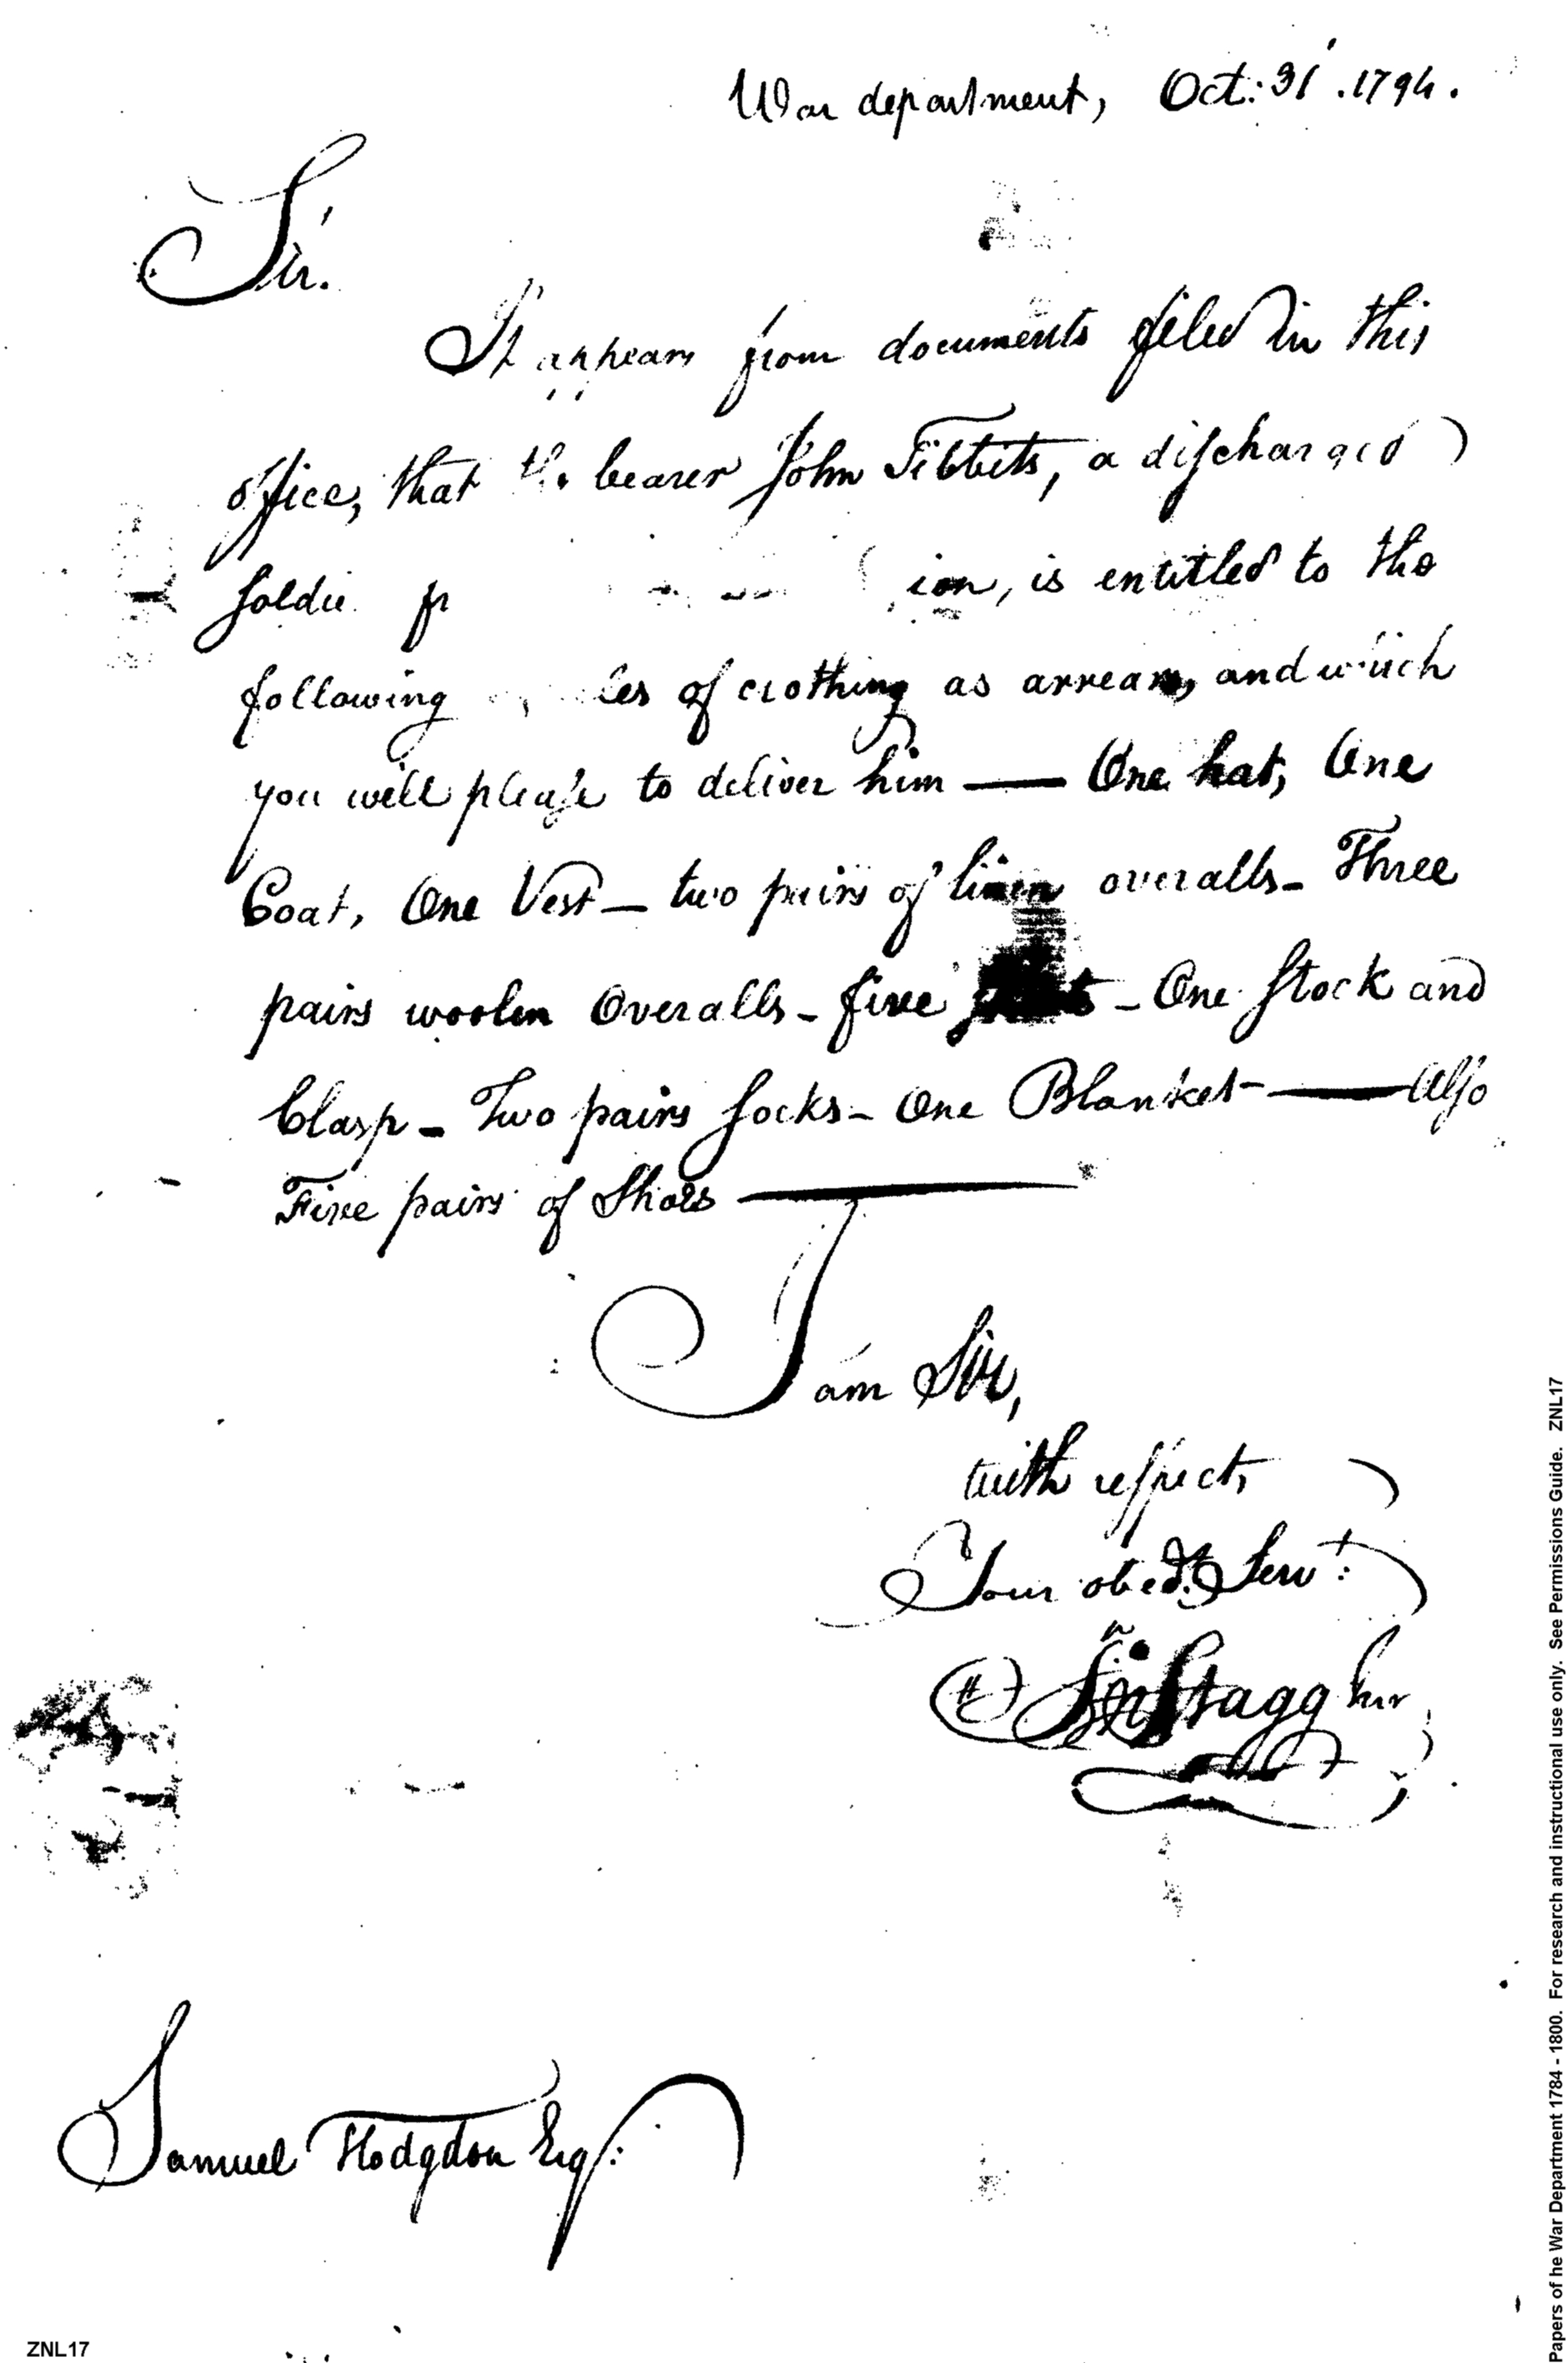 War department, Oct: 31 . 1794.
Sir.
It appears from documents filed in this
office, that the bearer John Tibbits, a discharged
is entitled to the
following of clothing as arrears, and which
you will please to deliver him — One hat, One
Coat, One Vest — two pairs of linen overalls — Three
pairs woolen Overalls — five — One Stock and
Clasp — Two pairs Socks — One Blanket — Also
Five pairs of Shoes —
I am Sir,
with respect,
Your obedt Servt:
Stagg Junr
Samuel Hodgdon Esqr:
ZNL17
Papers of he War Department 1784 - 1800. For research and instructional use only. See Permissions Guide. ZNL17